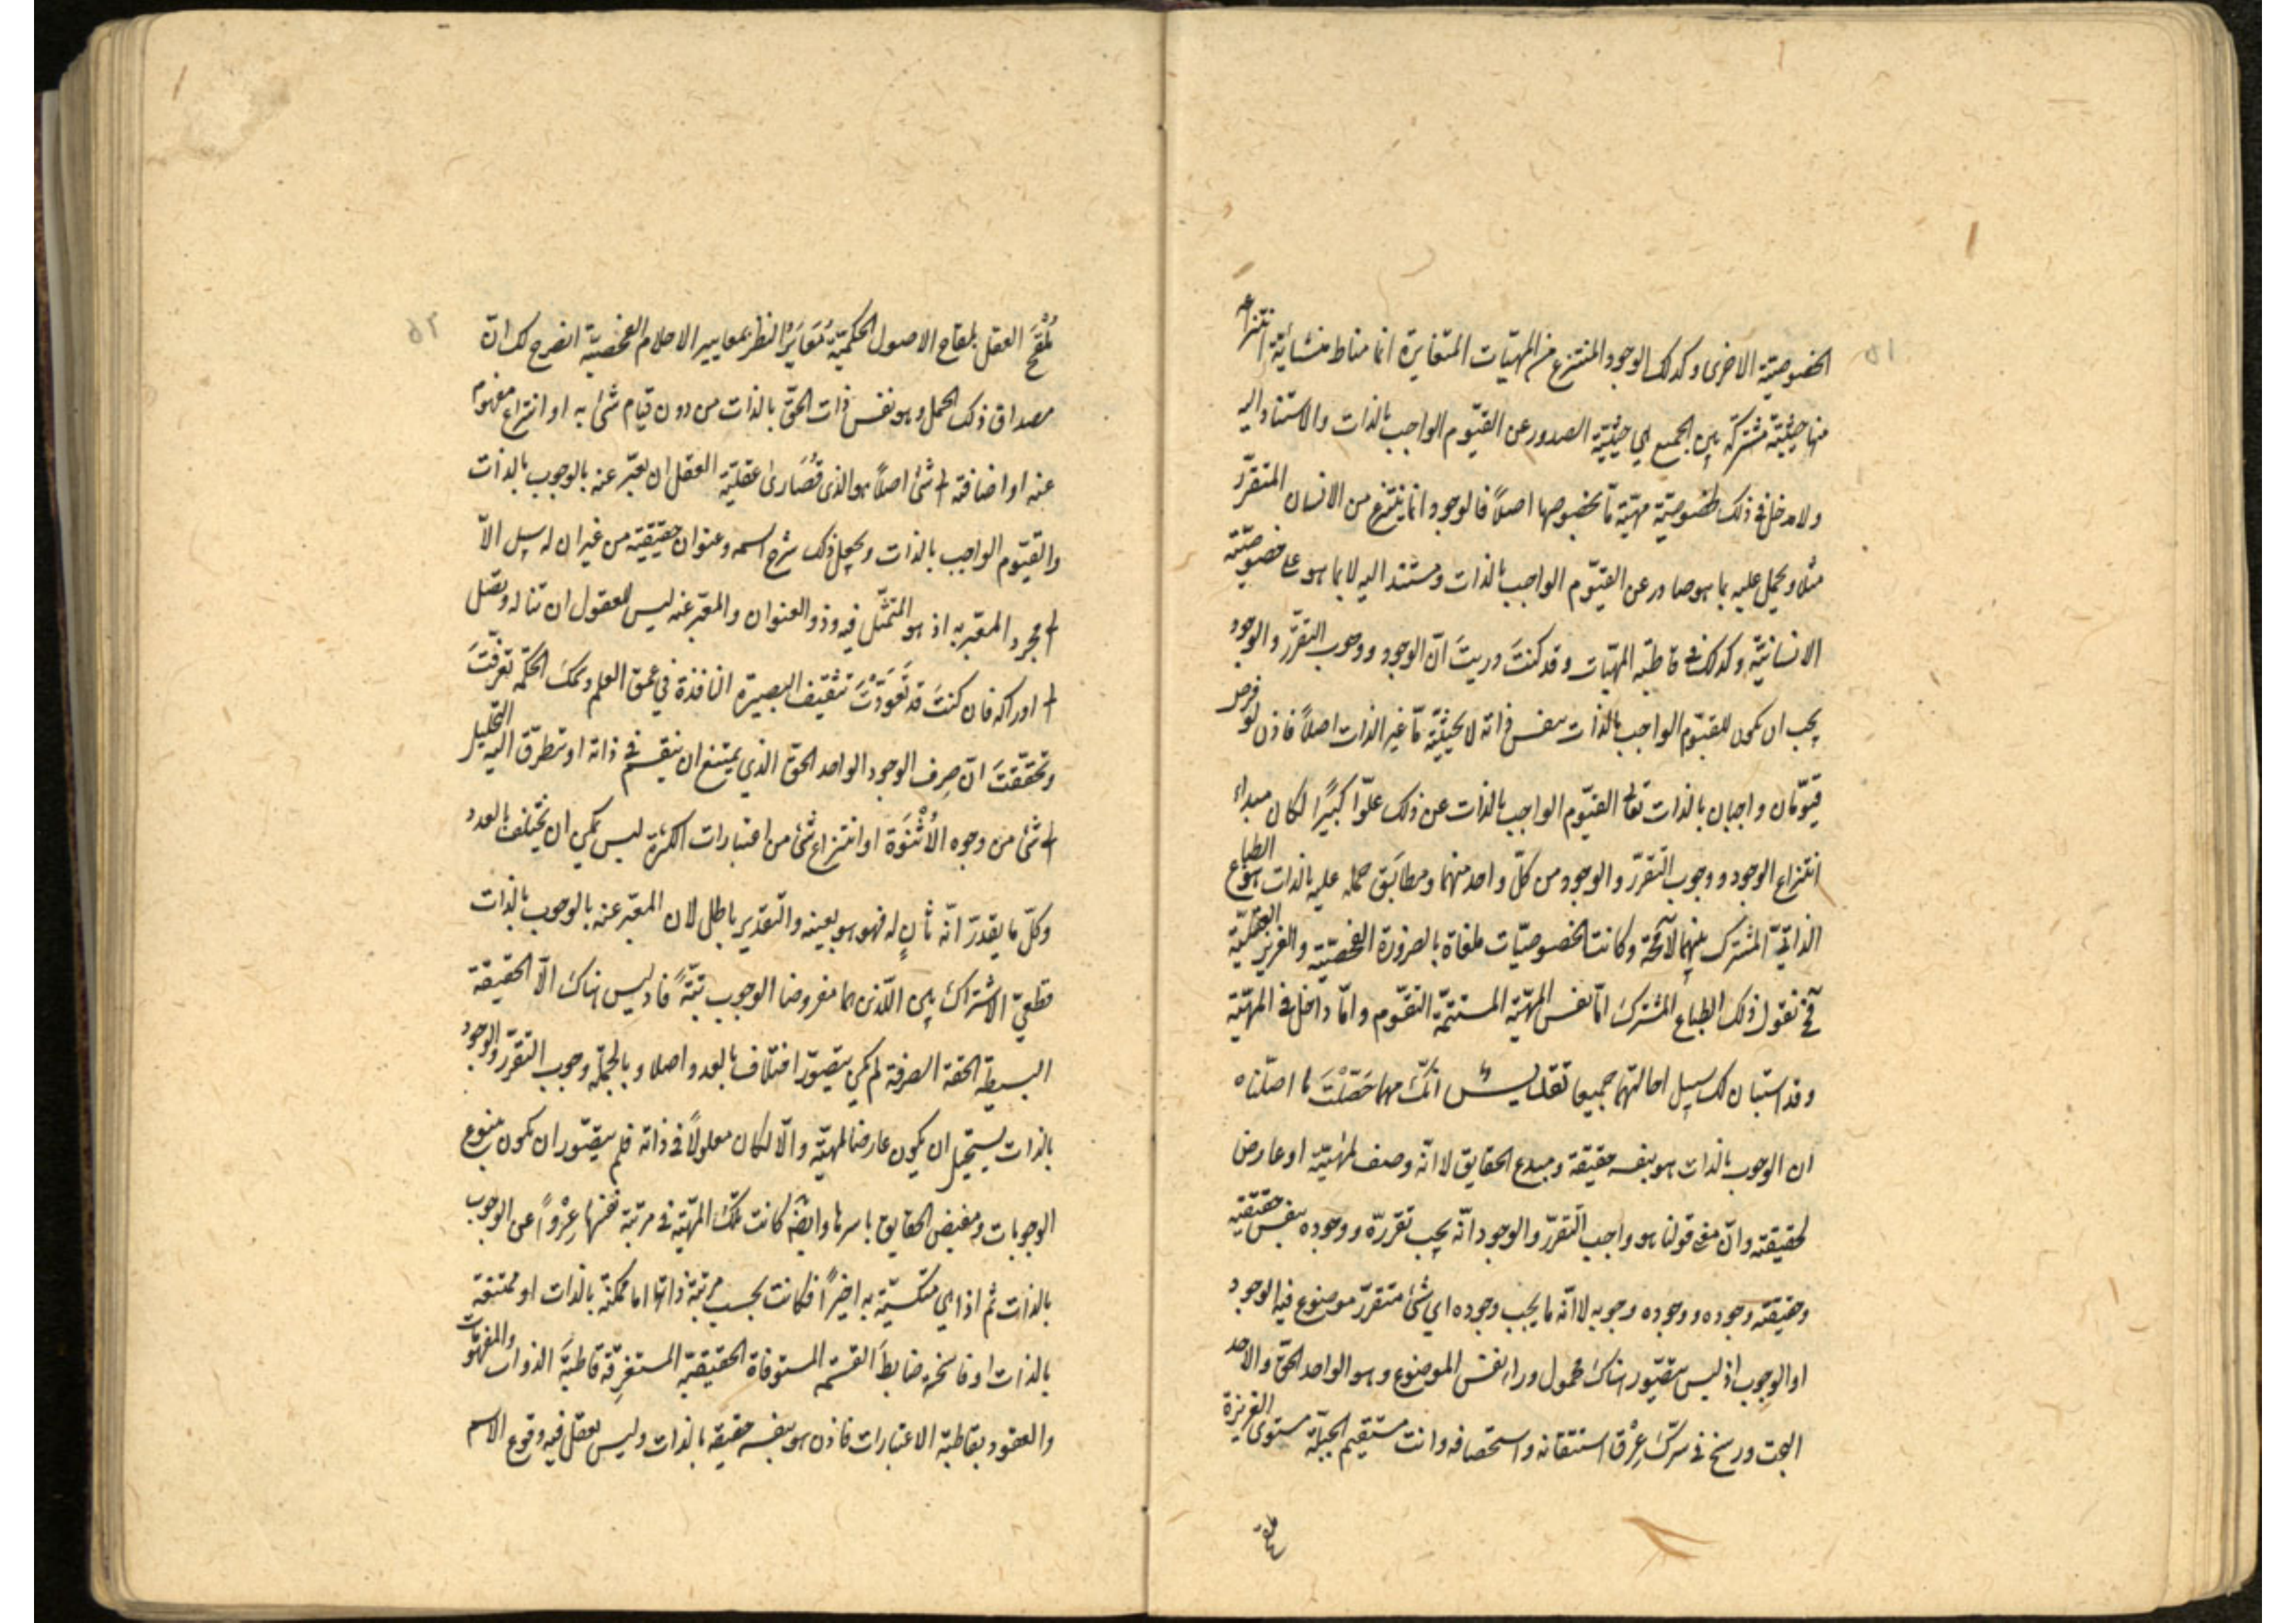 ٥١
الخصوصيّة الاخرى وكذلك الوجود المنتزع من المهيّات المتغايرة انما مناط منشائيّة انتزاعه
منها حيثيّة مشتركة بين الجميع هي حيثيّة الصدور عن القيّوم الواجب بالذات والاستناد اليه
ولا مدخل في ذلك لخصوصيّة مهيّة مّا بخصوصها اصلاً فالوجود انما ينتزع من الانسان المتقرّر
مثلا ويحمل عليه بما هو صادر عن القيّوم الواجب بالذات ومستند اليه لا بما هو على خصوصيّته
الانسانيّة وكذلك في قاطبة المهيّات وقد كنتَ دريتَ انّ الوجود ووجوب التقرّر والوجود
يجب ان يكون للقيّوم الواجب بالذات بنفس ذاته لا بحيثيّة مّا غير الذات اصلاً فاذن لو فرض
قيّومان واجبان بالذات تعالى القيّوم الواجب بالذات عن ذلك علوّاً كبيرًا لكان مبداء
انتزاع الوجود ووجوب التقرّر والوجود من كلّ واحد منهما ومطابَق حمله عليه بالذات هو الطباع
الذاتيّ المشترك بينهما لا محة وكانت الخصوصيّات ملغاة بالضرورة الفحصيّة والغريزة العقليّة
فح نقول ذلك الطباع المشترك امّا نفس المهيّة المستتمّة التقوّم وامّا داخل في المهيّة
وقد استبان لك سبيل احالتهما جميعا تقديس انّك مهما حَصَّلْتَ ما اصّلناه
ان الوجوب بالذات هو بنفسه حقيقة ومبدع الحقايق لا انّه وصف لمهيّة او عارض
لحقيقته وانّ معنى قولنا هو واجب التقرّر والوجود انّه يجب تقرّره ووجوده بنفس حقيقته
وحقيقته وجوده ووجوده وجوبه لا انّه ما يجب وجوده اي شئ متقرّر موضوع فيه الوجود
او الوجوب اذ ليس يتصّور هناك محمول وراء نفس الموضوع وهو الواحد الحقّ والاحد
البحت ورسخ في سرّك عِرْق استتقانه واستحصافه وانت مستقيم الجبلّة مستوى الغريزة
ملقح
٥٢
مُلْقَحَ العقل بلقاح الاصول الحكميّة مُعَايَرُ النظر بمعايير الاحلام الفحصيّة انصرح لك انّ
مصداق ذلك الحمل وهو نفس ذات الحقّ بالذات من دون قيام شئ به او انتزاع مفهوم
عنه او اضافته الى شئ اصلاً هو الذى قُصَارىٰ عقليّة العقل ان يعبّر عنه بالوجوب بالذات
والقيّوم الواجب بالذات ويجعل ذلك شرح اسمه وعنوان حقيقته من غير ان له سبيل الّا
الى مجرد المعبّر به اذ هو المتمثّل فيه وذو العنوان والمعبّر عنه ليس للعقول ان تناله وتصل
الى ادراكه فان كنتَ قد تَعَوَّدْتَ تثقيف البصيرة النافذة في عمق العلم وسمك الحكمة تعرّفتَ
وتحققتَ انّ صِرف الوجود الواحد الحقّ الذي يمتنع ان ينقسم في ذاته او يتطرّق اليه التحليل
الى شئ من وجوه الاُثْنَوَة او انتزاع شئ من اعتبارات الكثرة ليس يمكن ان يختلف بالعدد
وكلّ ما يقدرّ انّه ثانٍ له فهو هو بعينه والتقدير باطل لان المعبّر عنه بالوجوب بالذات
قطعيّ الاشتراك بين اللّذين هما مفروضا الوجوب بتّةً فاذ ليس هناك الّا الحقيقة
البسيطة الحقة الصرفة لم يكن يتصوّر اختلاف بالعدد اصلا وبالجملة وجوب التقرّر والوجود
بالذات يستحيل ان يكون عارضا لمهيّة والّا لكان معلولاً في ذاته فلم يتصّور ان يكون ينبوع
الوجوبات ومفيض الحقايق باسرها وايضًا كانت تلك المهيّة في مرتبة نفسها عِرْواً عن الوجوب
بالذات ثم اذا هي متكسّية به اخيراً فكانت بحسب مرتبة ذاتها اما ممكنة بالذات او ممتنعة
بالذات او فاسخة ضابطَ القسمة المستوفاة الحقيقية المستغرِقة قاطبةَ الذوات والمفهومات
والعقود بقاطبة الاعتبارات فاذن هو بنفسه حقيقة بالذات وليس يعقل فيه وقوع الاسم